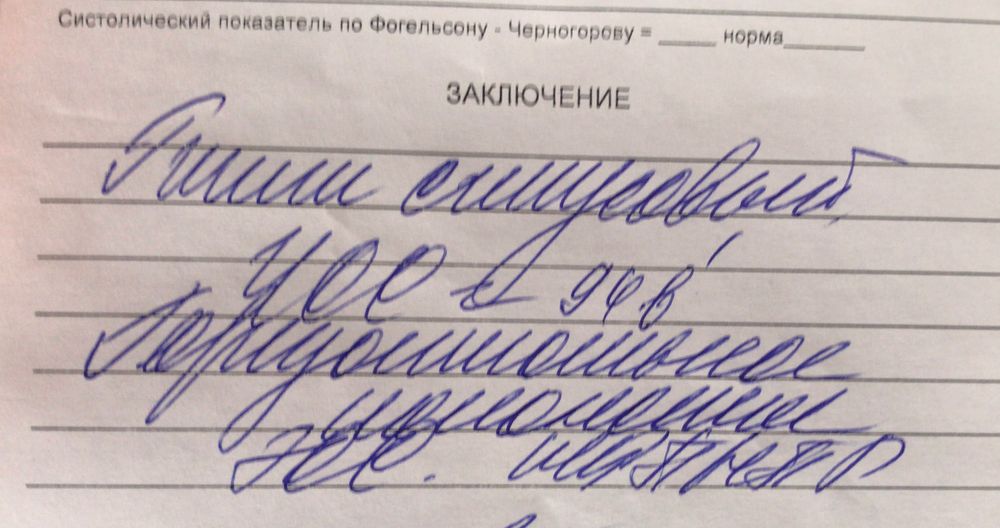 Систолический показатель по Фогельсону - Черногорову = _____ норма_______
ЗАКЛЮЧЕНИЕ
Ритм синусовый
ЧСС 94 в'
Горизонтальное
положение
ЭОС.